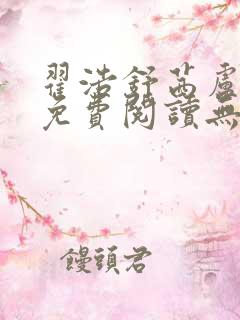 翟浩舒茜盧
免費閱讀無
饅頭君